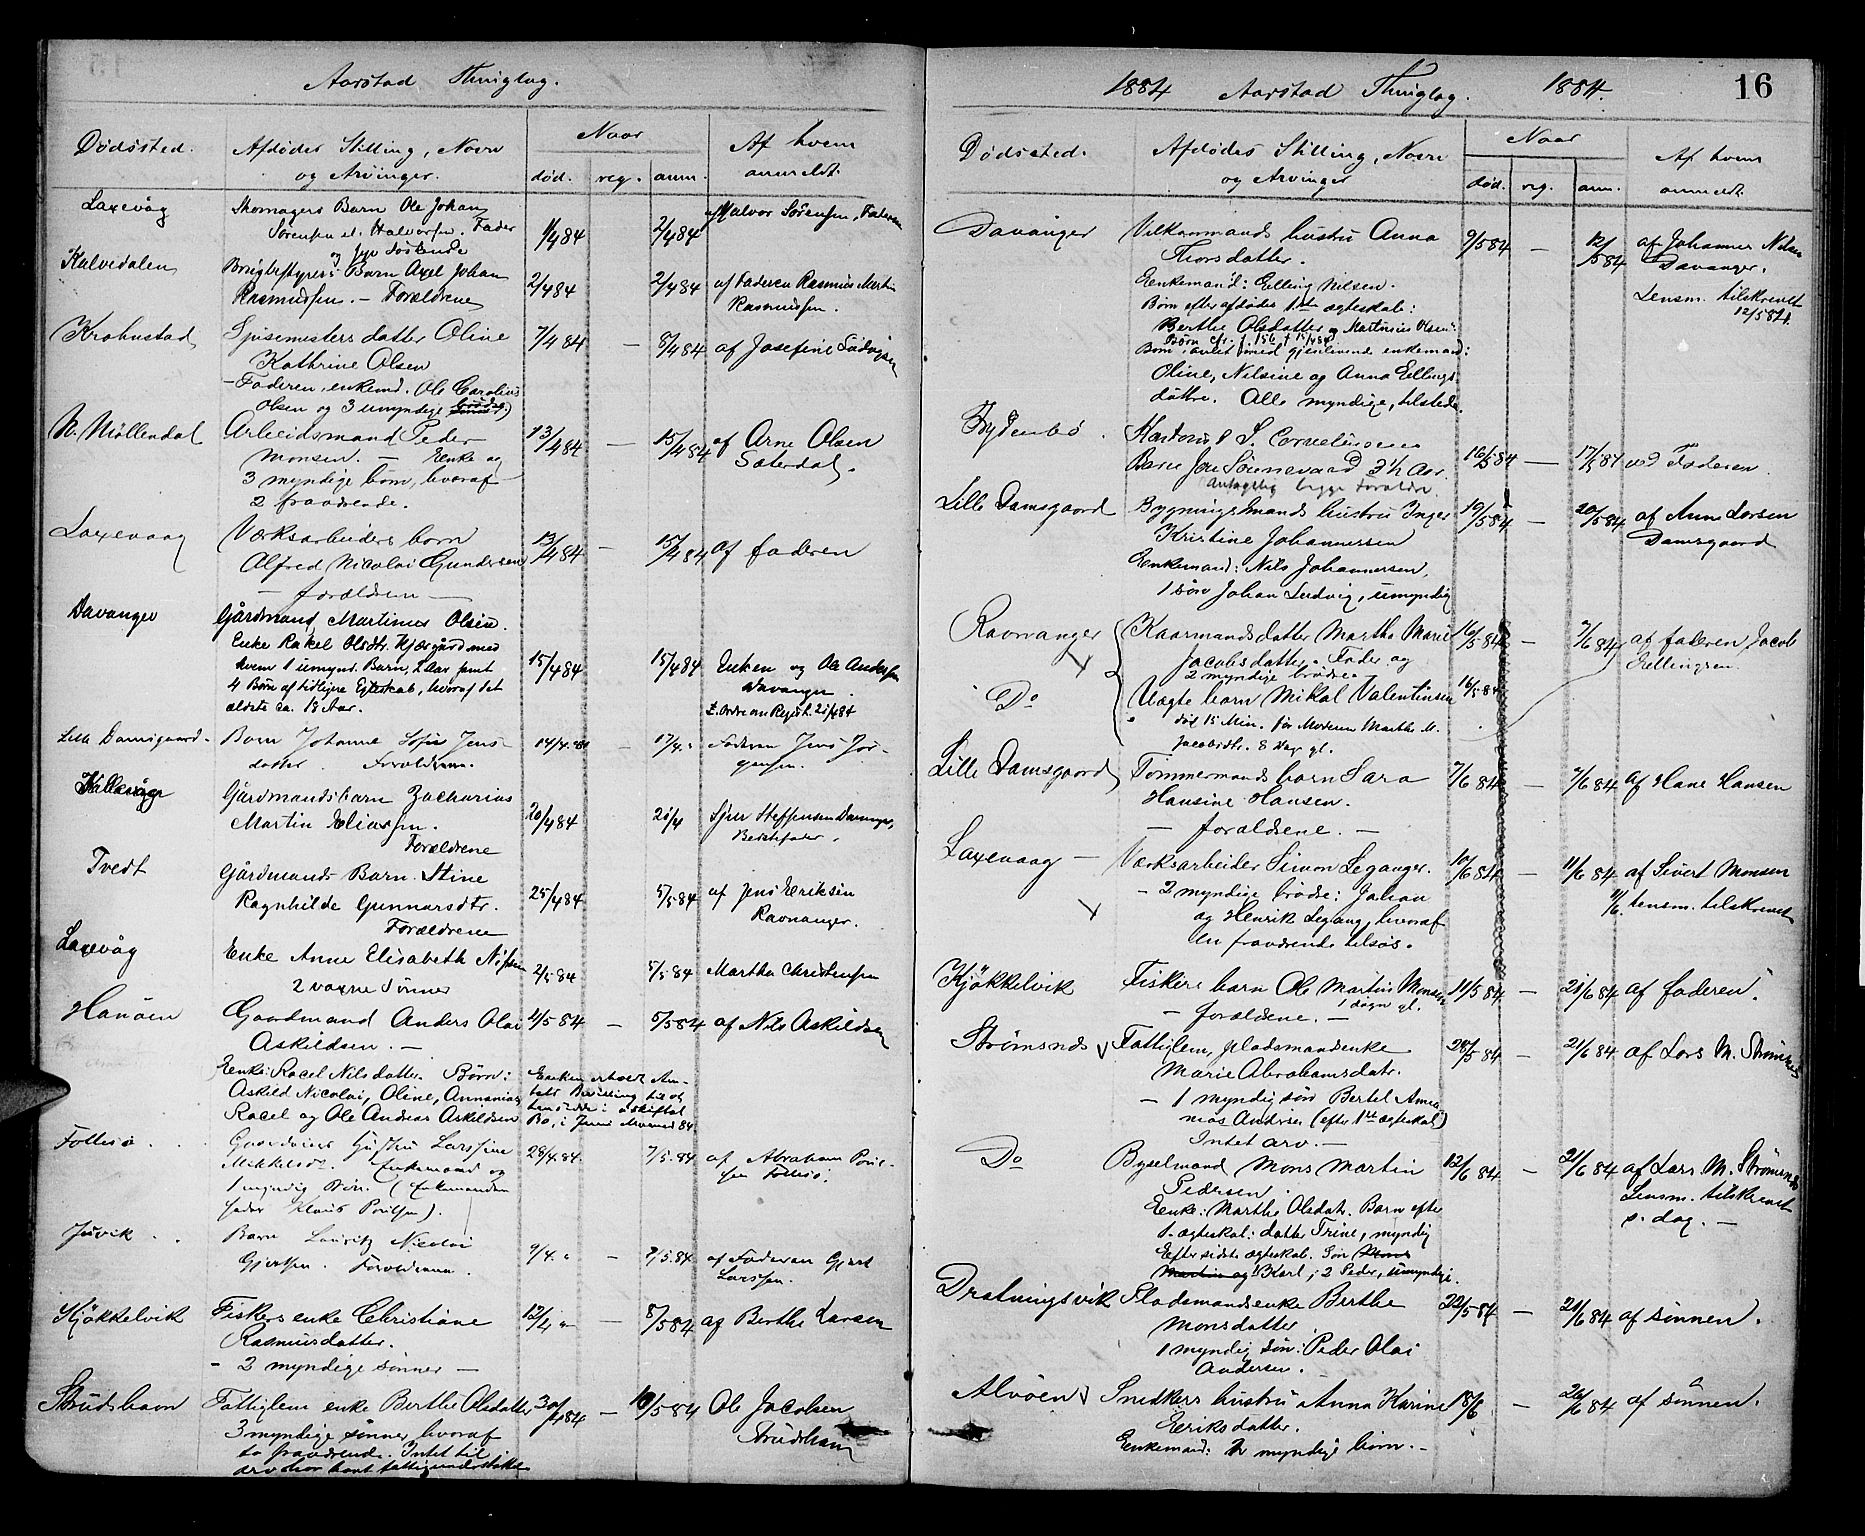 Aarstad Thinglag.
Dødssted.
Afdødes Stilling, Navn
og Arvinger.
Naar
død. reg. anm.
Af hvem
anmeldt.
Laxevåg
Skomagers Barn Ole Johan
Sørensen el. Halvorsen. Fader
og Søskende
1/4 84
2/4 84
af Halvor Sørensen, Faderen
Kalvedalen
Brugbestyrers Barn Axel Johan
Rasmussen. — Forældrene
2/4 84
2/4 84
af Faderen Rasmus Martin
Rasmussen.
Krohnstad
Spisemesters datter Oline
Kathrine Olsen
- Faderen, enkemd. Ole Carolius
Olsen og 3 umyndige brødre)
7/4 84
—
8/4 84
af Josefine Ludvigsen
N. Møllendal
Arbeidsmand Peder
Monsen. — Enke og
3 myndige børn, hvoraf
2 fraværende.
13/4 84
—
15/4 84
af Arne Olsen
Sæterdal.
Laxevaag
Værksarbeiders barn
Alfred Nicolai Gundersen
— forældrene —
13/4 84
—
15/4 84
af faderen
Davanger
Gårdmand Martinus Olsen.
Enke Rakel Olsdtr. Kjærgård med
hvem 1 umynd. Barn, 2 Aar samt
4 Børn af tidligere Egteskab, hvoraf det
ældste ca. 18 Aar.
15/4 84
15/4 84
Enken og Ole Andersen
Davanger.
Ordre om Regist. 21/4 84
Lille Damsgaard
Barn Johanne Sofie Jens-
datter. Forældrene.
14/4 84
—
17/4 "
Faderen Jens Jør-
gensen.
Gårdmandsbarn Zacharias
Martin Eliassen.
Forældrene
20/4 84
21/4
Sjur Steffensen Davanger,
Bestefader.
Tvedt
Gårdmands Barn Stine
Ragnhilde Gunnarsdtr.
Forældrene
25/4 84
5/5 84
af Jens Eriksen
Ravnanger.
Laxevåg
Enke Anne Elisabeth Nissen
2 voxne Sønner
2/5 84
5/5 84
Martha Christensen
Hanøen
Gaardmand Anders Olai
Askildsen. —
Enke: Racel Nilsdatter. Børn:
Askild Nicolai, Oline, Annanias,
Racel og Ole Andreas Askildsen
4/5 84
—
5/5 84
af Nils Askildsen
Enken erholdt Am-
tets Bevilling til at
hensidde i uskiftet
Bo, i Juni Maaned 84
Follesø
Gaardmands Hustru Larssine
Mikkelsdtr. Enkemand og
1 myndig Søn. (Enkemandens
fader Klaus Poulsen).
28/4 84.
7/5 84
af Abraham Poul-
sen Follesø.
Juvik
Barn Lauritz Nicolai
Gjertsen. Forældrene.
9/4 "
—
7/5 84
af Faderen Gjert
Larssen.
Kjøkkelvik
Fiskers enke Christiane
Rasmusdatter.
- 3 myndige sønner —
12/4 "
—
8/5 84
ag Berthe Larsen
Strudshavn
Fattiglem enke Berthe Olsdatter
3 myndige sønner hvoraf
to fraværende. Intet til
arv har havt fattigunderstøttelse
30/4 84
—
10/5 84
Ole Jacobsen
Strudshavn
1884 Aarstad Thinglag. 1884.
16
Dødssted.
Afdødes Stilling, Navn
og Arvinger
Naar
død. reg. anm.
Af hvem
anmeldt.
Davanger
Vilkaarmands hustru Anna
Thorsdatter.
Enkemand: Elling Nilsen.
Børn efter afdødes 1ste ægteskab:
Berthe Olsdatter og Martinius Olsen.
Børn avlet med gjenlevende enkemand:
Oline, Nilsine og Anna Ellings-
døttre. Alle myndige, tilstede.
9/5 84
—
12/5 84
af Johannes Nilsen
Davanger.
Lensm. tilskrevet
12/5 84.
Frydenbø.
S. Cornelinsens
Barn Jon Sønnevaad 3½ Aar.
Antagelig begge Forældre.
16/5 84
—
17/5 84
ved Faderen.
Lille Damsgaard
Bygningsmands hustru Inger
Kristine Johannessen
Enkemand: Nils Johannessen,
1 søn Johan Ludvig, umyndig
19/5 84
—
20/5 84
af Anna Larsen
Damsgaard
Ravnanger
Kaarmands datter Martha Marie
Jacobsdatter. Fader og
2 myndige brødre.
16/5 84
—
7/6 84
af faderen Jacob
Ellingsen.
Do
Uægte barn Mikal Valentinsen
død 15 Min. før Moderen Marthe M.
Jacobsdtr. 8 Dage gl.
16/5 84
Lille Damsgaard
Tømmermands barn Sara
Hansine Hansen.
— forældrene. —
7/6 84
—
7/6 84
af Hane Hansen
Laxevaag —
Værksarbeider Simon Leganger.
- 2 myndige brødre: Johan
og Henrik Legang, hvoraf
en fraværende tilsøs.
10/6 84
—
11/6 84
af Sivert Monsen
11/6 Lensm. tilskrevet
Kjøkkelvik
Fiskers barn Ole Martin Monsen
1 døgn gl.
- forældrene. —
11/5 84
—
21/6 84
af faderen.
Strømsnds
Fattiglem, pladsmandsenke
Marie Abrahamsdatr.
- 1 myndig søn Bertel Ama-
nias Andersen (efter 1ste ægteskab)
Intet arv. —
28/5 84
—
21/6 84
af Lars M. Strømsnes
Do
Byselmand Mons Martin
Pedersen.
Enke: Marthe Olsdatr. Barn efter
1. ægteskab: datter Trine, myndig
Efter sidste ægteskab. Søn Mons
Martin og 1 Karl, 2 Peder, umyndige.
12/6 84
—
21/6 84
af Lars M. Strømsnes
Lensm. tilskrevet
s. dag. —
Dratningsvik
Pladsmandsenke Berthe
Monsdatter.
1 myndig søn: Peder Olai
Andersen.
22/5 84
—
21/6 84
af sønnen.
Alvøen
Snedkers hustru Anna Karine
Eriksdatter.
Enkemand: 2 myndige børn. —
18/6
—
26/6 84
af sønnen.